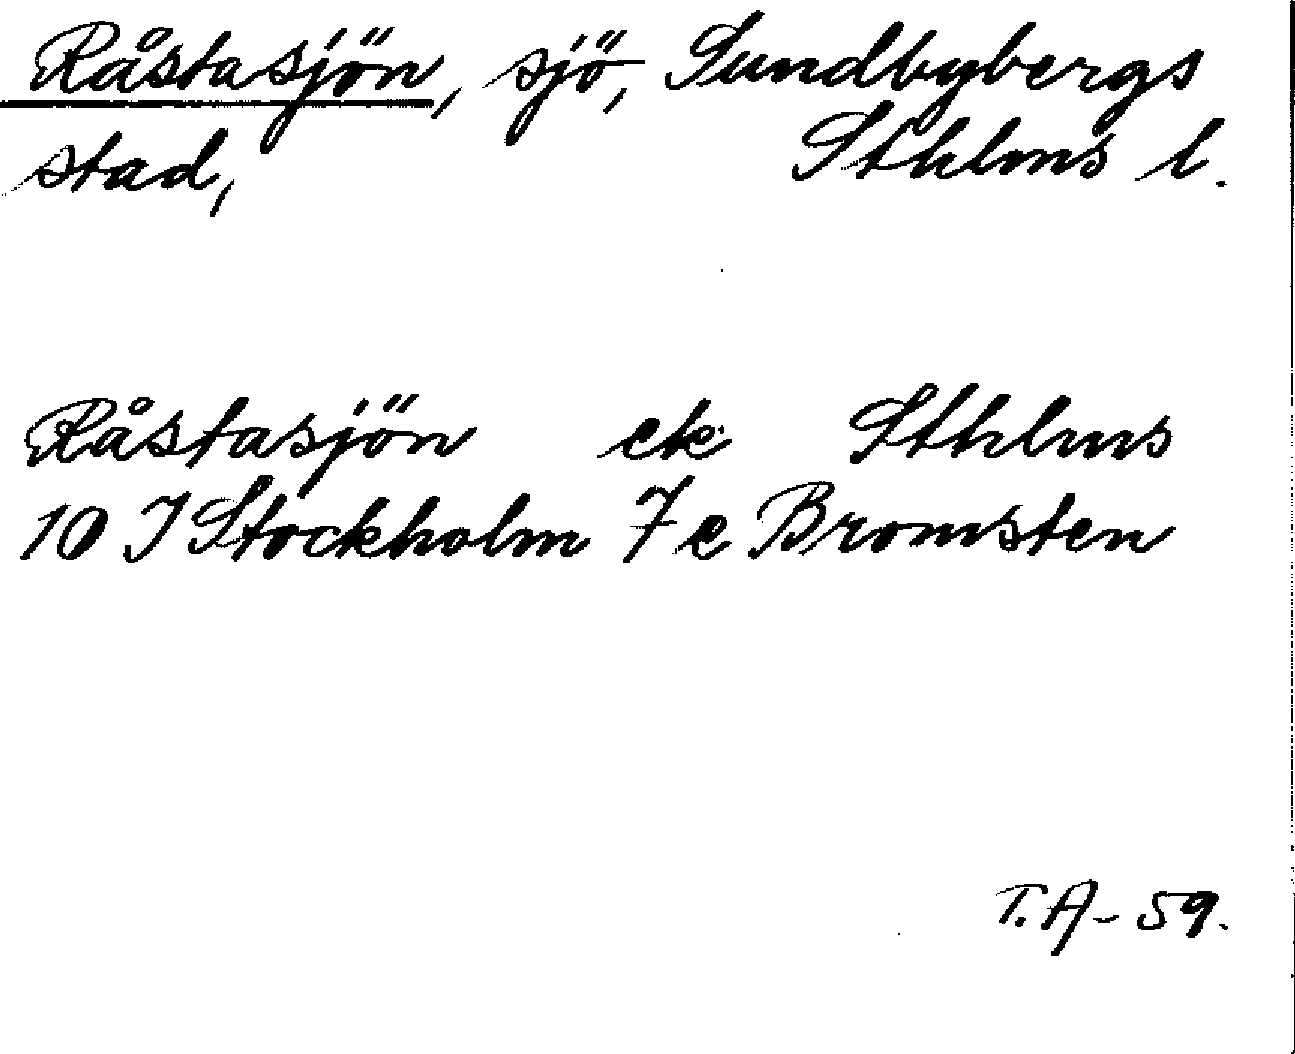 Råstasjön, sjö, Sundbybergs
stad, Sthlms l.
Råstasjön ek Sthlms
10 I Stockholm 7 e Bromsten
T.A-59.